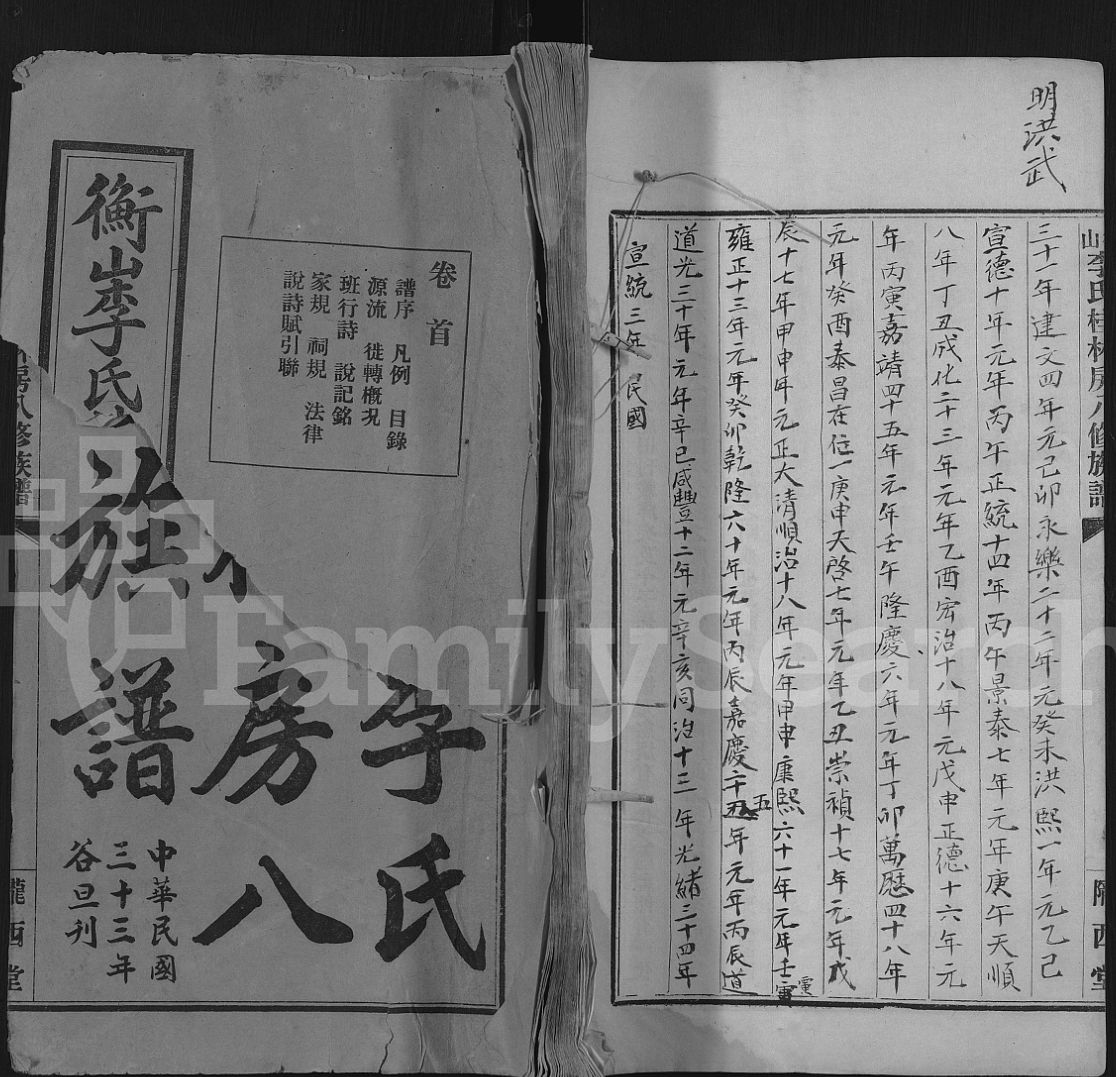 明洪武
三十一年建文四年元己卯永樂二十二年元癸未洪熙一年元乙己
宣德十年元年丙午正統十四年丙午景泰七年元年庚午天順
八年丁丑成化二十三年元年乙酉宏治十八年元戊申正德十六年元
年丙寅嘉靖四十五年元年壬午隆慶六年元年丁卯萬歷四十八年
元年癸酉泰昌在位一庚申天啓七年元年乙丑崇禎十七年元年戊
辰十七年甲申年元正大清順治十八年元年甲申康熙六十一年元年壬寅
雍正十三年元年癸卯乾隆六十年元年丙辰嘉慶二十五年元年丙辰道
道光三十年元年辛巳咸豐十二年元辛亥同治十三年光緒三十四年
宣統三年 民國
山李氏桂林房八修族譜
隴西堂
卷首
譜序 凡例 目錄
源流 徙轉概況
班行詩 說記銘
家規 祠規 法律
說詩賦引聯
衡山李氏
李氏
房八
族譜
中華民國
三十三年
谷旦刊
房八修族譜
隴西堂
FamilySearch